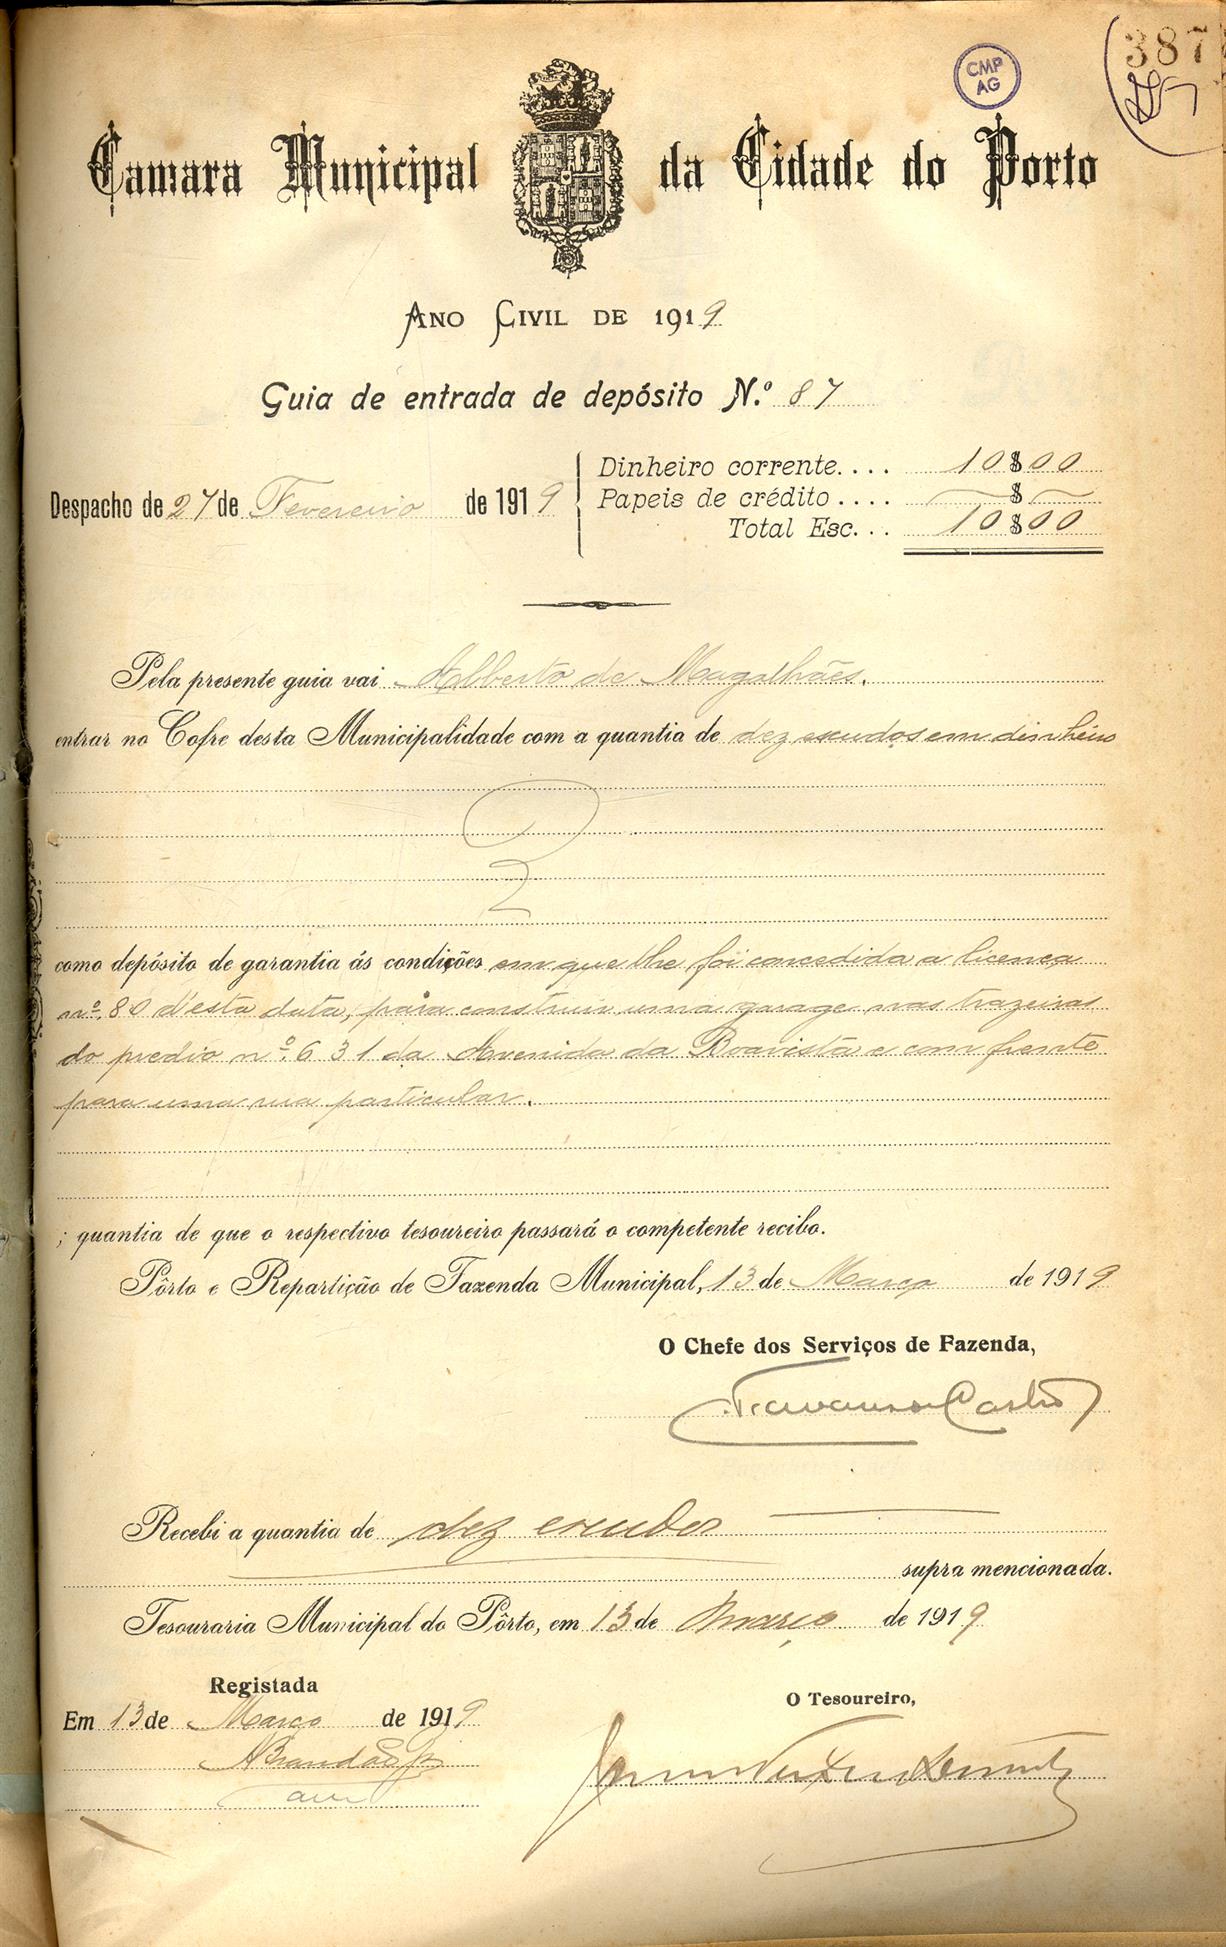 387
CMP
AG
Camara Municipal da Cidade do Porto
ANO CIVIL DE 1919
Guia de entrada de depósito N.º 87
Dinheiro corrente.... 10$00
Despacho de 27 de Fevereiro de 1919
Papeis de crédito.... $
Total Esc... 10$00
Pela presente guia vai Alberto de Magalhães.
entrar no Cofre desta Municipalidade com a quantia de dez escudos em dinheiro
como depósito de garantia ás condições em que lhe foi concedida a licença
nº. 80 d'esta data, para construir uma garage nas trazeiras
do predio nº. 631 da Avenida da Boavista e com frente
para uma rua particular.
; quantia de que o respectivo tesoureiro passará o competente recibo.
Pôrto e Repartição de Fazenda Municipal, 13 de Março de 1919
O Chefe dos Serviços de Fazenda,
Castro
Recebi a quantia de dez escudos
supra mencionada.
Tesouraria Municipal do Pôrto, em 13 de março de 1919
Registada
O Tesoureiro,
Em 13 de Março de 1919
ABrandão Jr